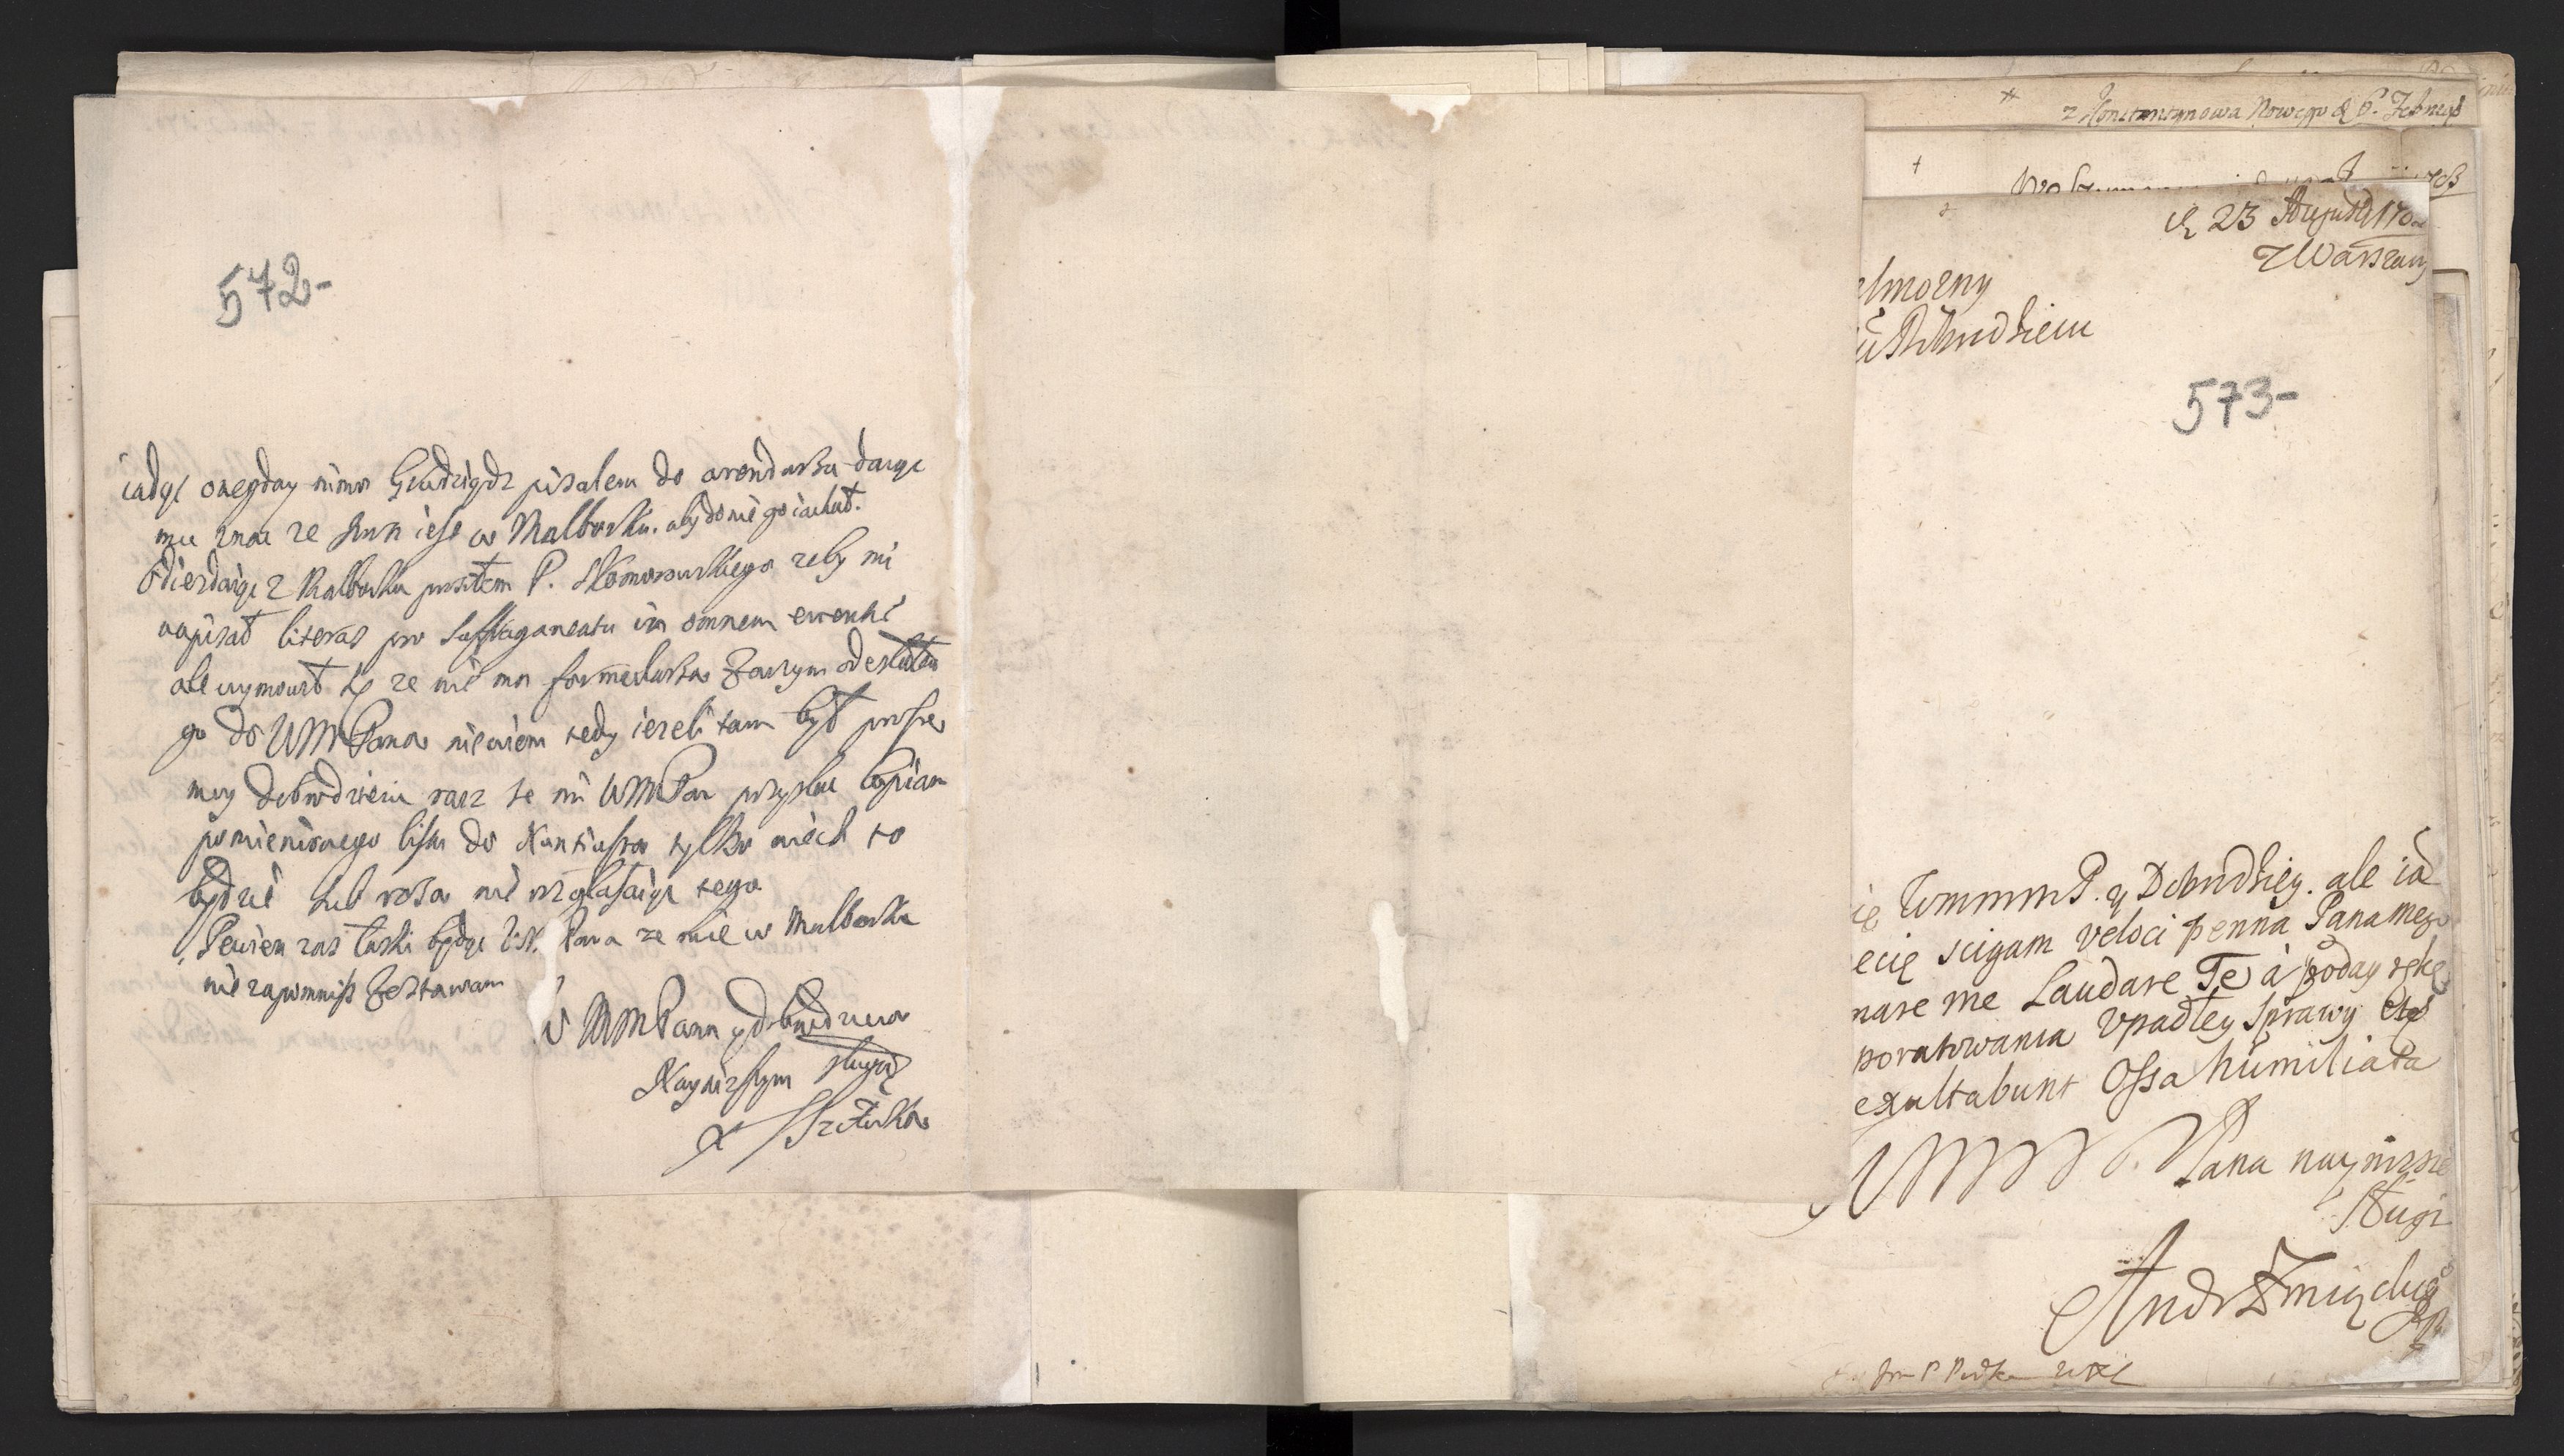 572-
iadąc onegday mimo Grudziądz pisalem do arendarza daiąc
mu znac ze Jmn iest w Malborku. aby do niego iachał.
Odiezdaiąc z Malborku prosiłem P. Skomorowskiego zeby mi
napisał literas pro suffraganeatu in omnem eventū
ale wymowił się ze nie ma formularza Zaczym odesłałem
go do WMMPana niewiem tedy iezeli tam był prosze
moy dobrodzieiu racz ze mi WMMPan przysłac kopiam
pomienionego listu do Nuntiusza tylko niech to
będzie sub rosa nie rozgłaszaiąc tego
Pewien zas łaski będąc WM Pana ze mie w Malborku
nie zapomnisz Zostawam
WMMPana y dobrodzieia
Nayniszym sługą
X Szczuka
z Konstantynowa Nowego d 6.
d 23 Augusti 170
z Warszawy
elmozny
u Dobrodzieiu
573-
ię WmmmP. y Dobrodziey. ale ia
ecię scigam veloci penna Pana mego
nare me Laudare Te à poday rękę
poratowania Vpadłey Sprawy etc
exultabunt Ossa humiliata
WMMMP. Pana naynizszy
Sługa
Andr